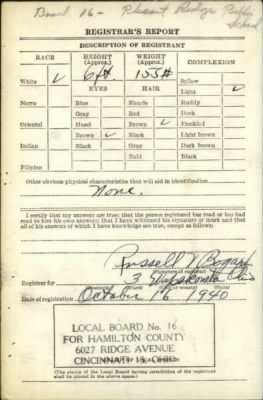 Board 16 - Pleasant Ridge Public School
REGISTRAR'S REPORT
DESCRIPTION OF REGISTRANT
RACE HEIGHT (Approx.) WEIGHT (Approx.) COMPLEXION
White ✓ 6 ft. 155# Sallow
EYES HAIR Light ✓
Negro Blue Blonde Ruddy
Gray Red Dark
Oriental Hazel Brown ✓ Freckled
Brown ✓ Black Light brown
Indian Black Gray Dark brown
Bald Black
Filipino
Other obvious physical characteristics that will aid in identification
None.
I certify that my answers are true; that the person registered has read or has had
read to him his own answers; that I have witnessed his signature or mark and that
all of his answers of which I have knowledge are true, except as follows:
Russell
(Signature of registrar)
Registrar for 3 Wapakoneta Ohio
Date of registration October 16 1940
LOCAL BOARD No. 16
FOR HAMILTON COUNTY
6027 RIDGE AVENUE
CINCINNATI, OHIO
(The stamp of the Local Board having jurisdiction of the registrant
shall be placed in the above space.)